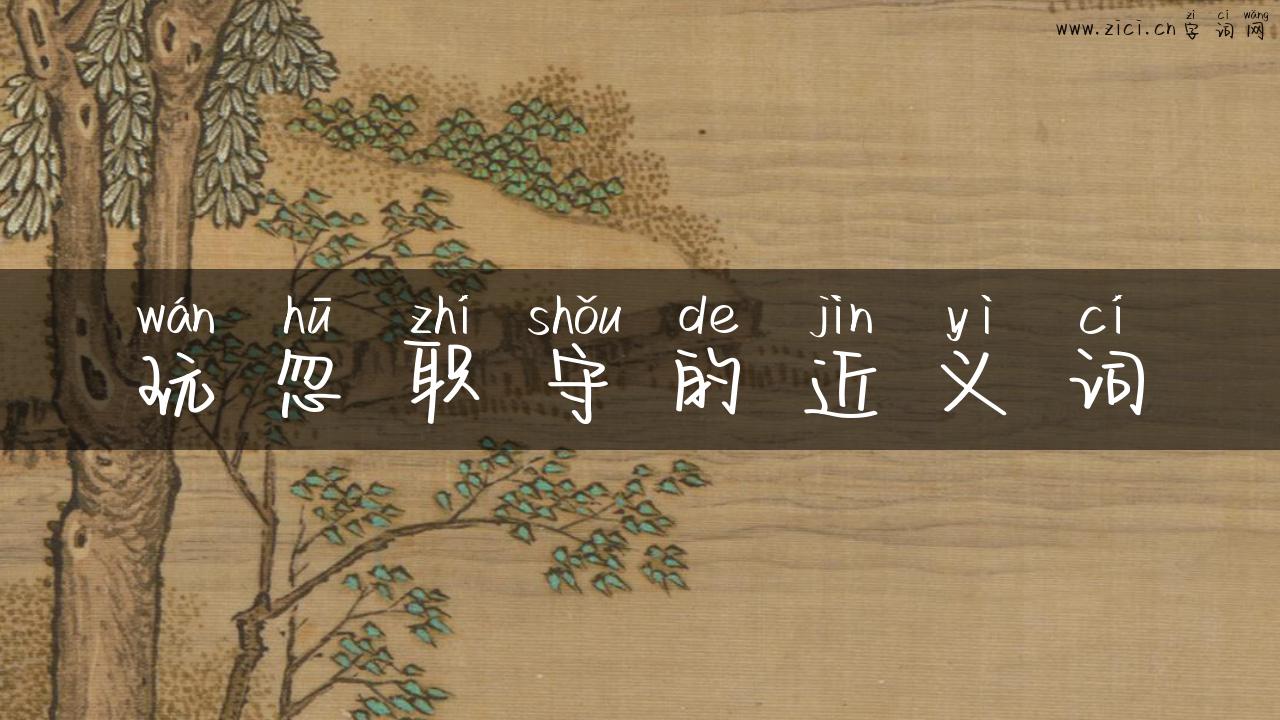 zì cí wǎng
www.zici.cn字词网
wán hū zhí shǒu de jìn yì cí
玩忽职守的近义词